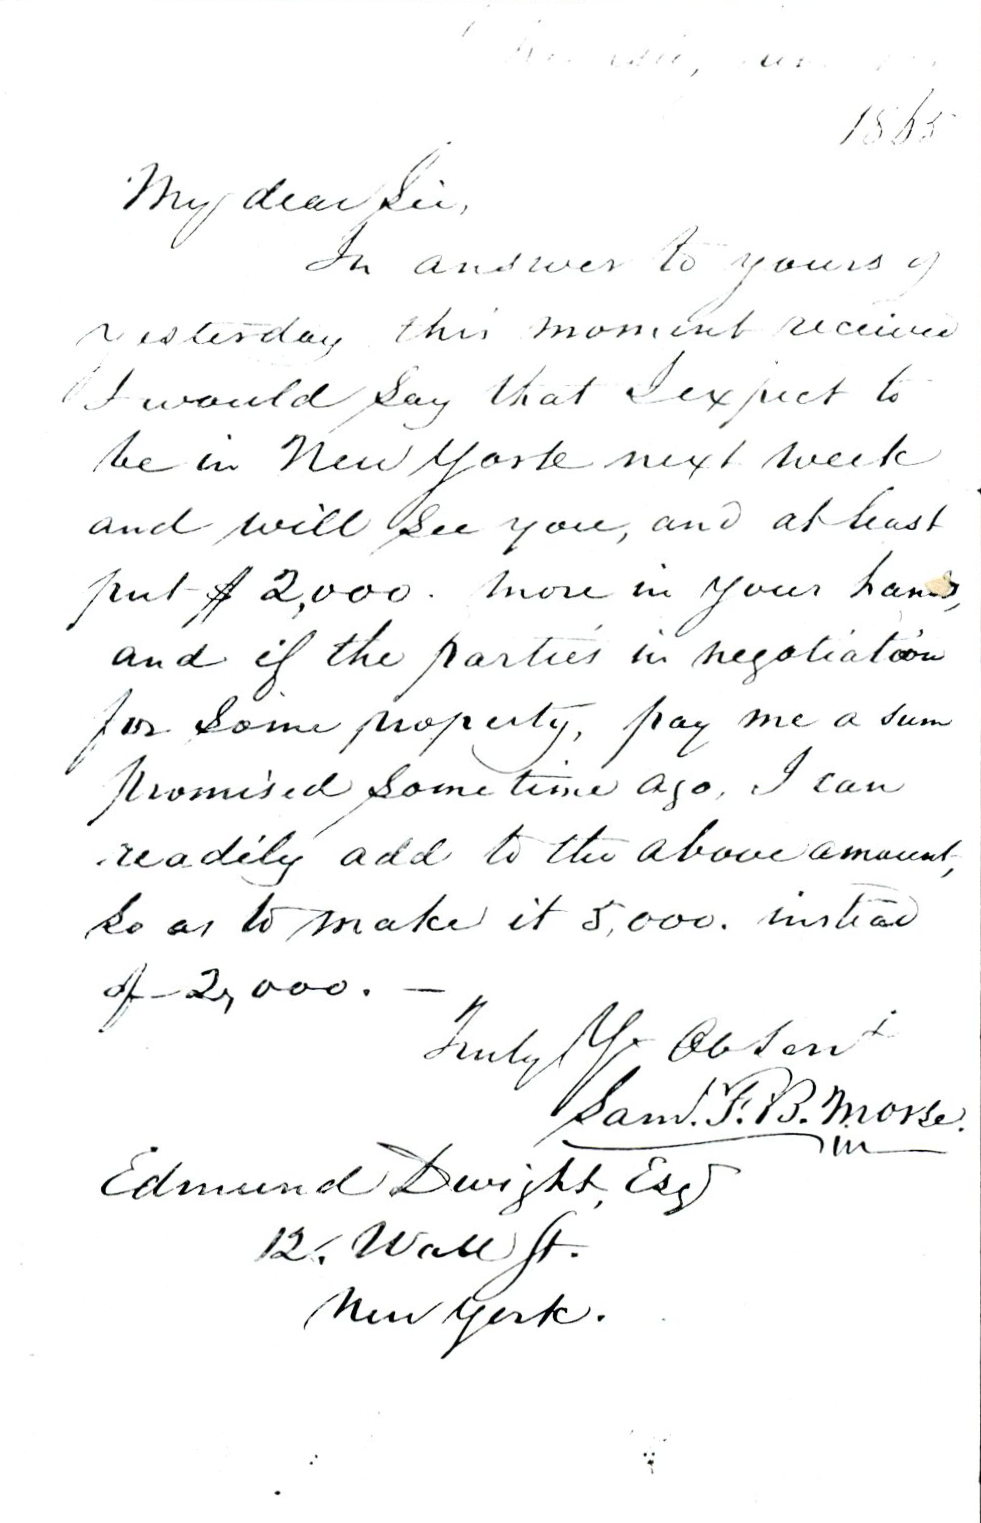 1865
My dear Sir,
In answer to yours of
yesterday this moment received
I would say that I expect to
be in New York next week
and will see you, and at least
put $2,000. more in your hands,
and if the parties in negotiation
for some property, pay me a sum
promised some time ago, I can
readily add to the above amount,
so as to make it 5,000. instead
of 2,000. —
Truly Yr Ob Servt
Saml. F. B. Morse.
Edmund Dwight, Esq
12. Wall St.
New York.